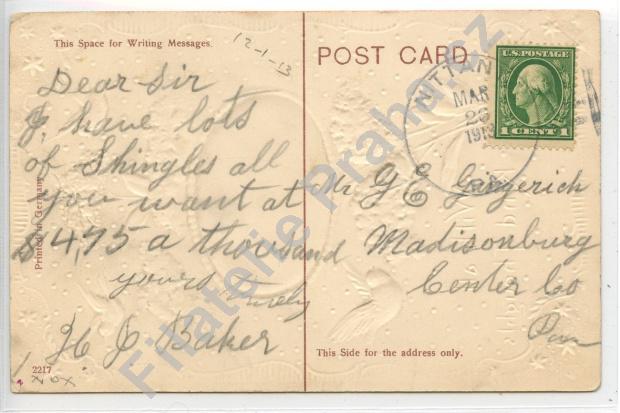 This Space for Writing Messages.
12-1-13
POST CARD
U.S. POSTAGE
1 CENT 1
NITTAN
MAR
26
191
Dear Sir
I have lots
of Shingles all
you want at
$4,75 a thousand
yours truly
H J Baker
Mr G E Gingerich
Madisonburg
Center Co
Printed in Germany
This Side for the address only.
2217
Filatelie Praha.cz